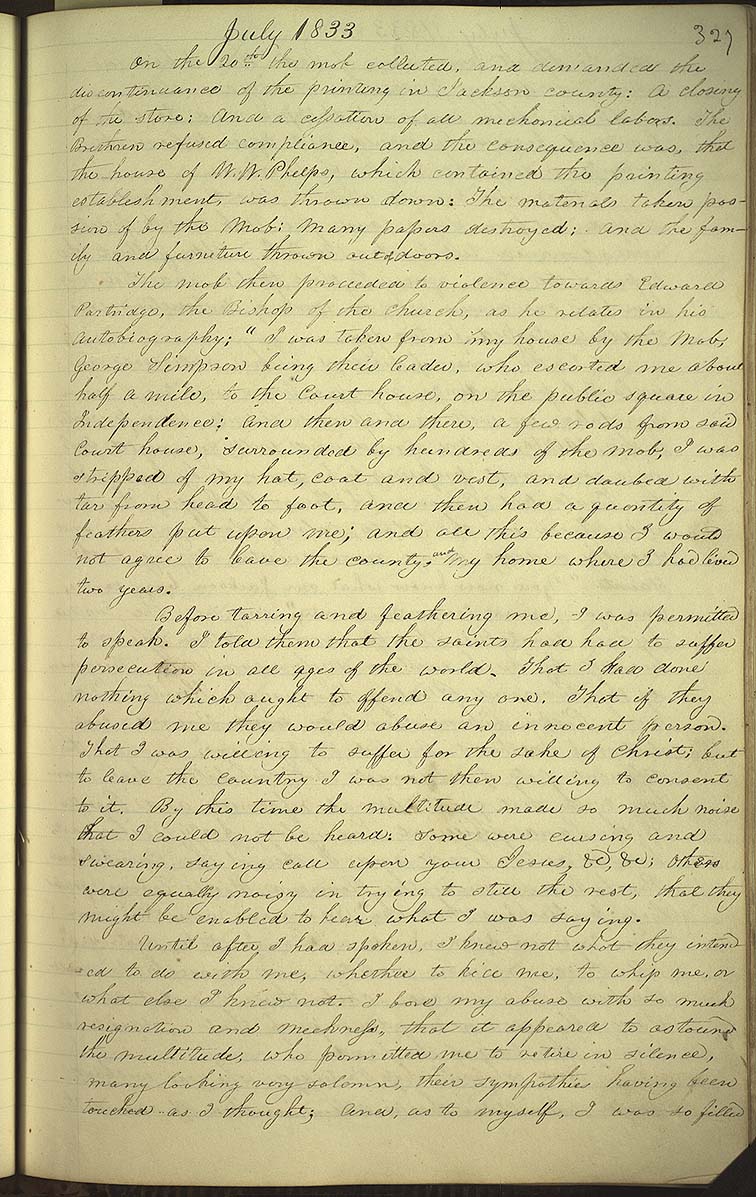 July 1833
327
On the 20th the mob collected, and demanded the
discontinuance of the printing in Jackson county: a closing
of the store; And a cessation of all mechanical labors. The
Brethren refused compliance, and the consequence was, that
the house of W. W. Phelps, which contained the printing
establishment, was thrown down: The materials taken pos-
sion of by the Mob; Many papers destroyed; And the fam-
ily and furneture thrown out of doors.
The mob then proceeded to violence towards Edward
Partridge, the Bishop of the church, as he relates in his
autobiography; "I was taken from my house by the Mob,
George Simpson being their leader, who escorted me about
half a mile, to the Court house, on the public square in
Independence; and then and there, a few rods from said
Court house, surrounded by hundreds of the mob, I was
stripped of my hat, coat and vest, and daubed with
tar from head to foot, and then had a quantity of
feathers put upon me; and all this because I would
not agree to leave the county, and my home where I had lived
two years.
Before tarring and feathering me, I was permitted
to speak. I told them that the saints had had to suffer
persecution in all ages of the world. That I had done
nothing which aught to offend any one. That if they
abused me they would abuse an innocent person.
That I was willing to suffer for the sake of Christ; but
to leave the country I was not then willing to consent
to it. By this time the multitude made so much noise
that I could not be heard: Some were cursing and
swearing, saying call upon your Jesus, &c, &c; Others
were equally noisy in trying to still the rest, that they
might be enabled to hear what I was saying.
Until after I had spoken, I knew not what they intend-
ed to do with me, whether to kill me, to whip me, or
what else I knew not. I bore my abuse with so much
resignation and meekness, that it appeared to astound
the multitude, who permitted me to retire in silence,
many looking very solemn, their sympathies having been
touched as I thought; And, as to myself, I was so filled